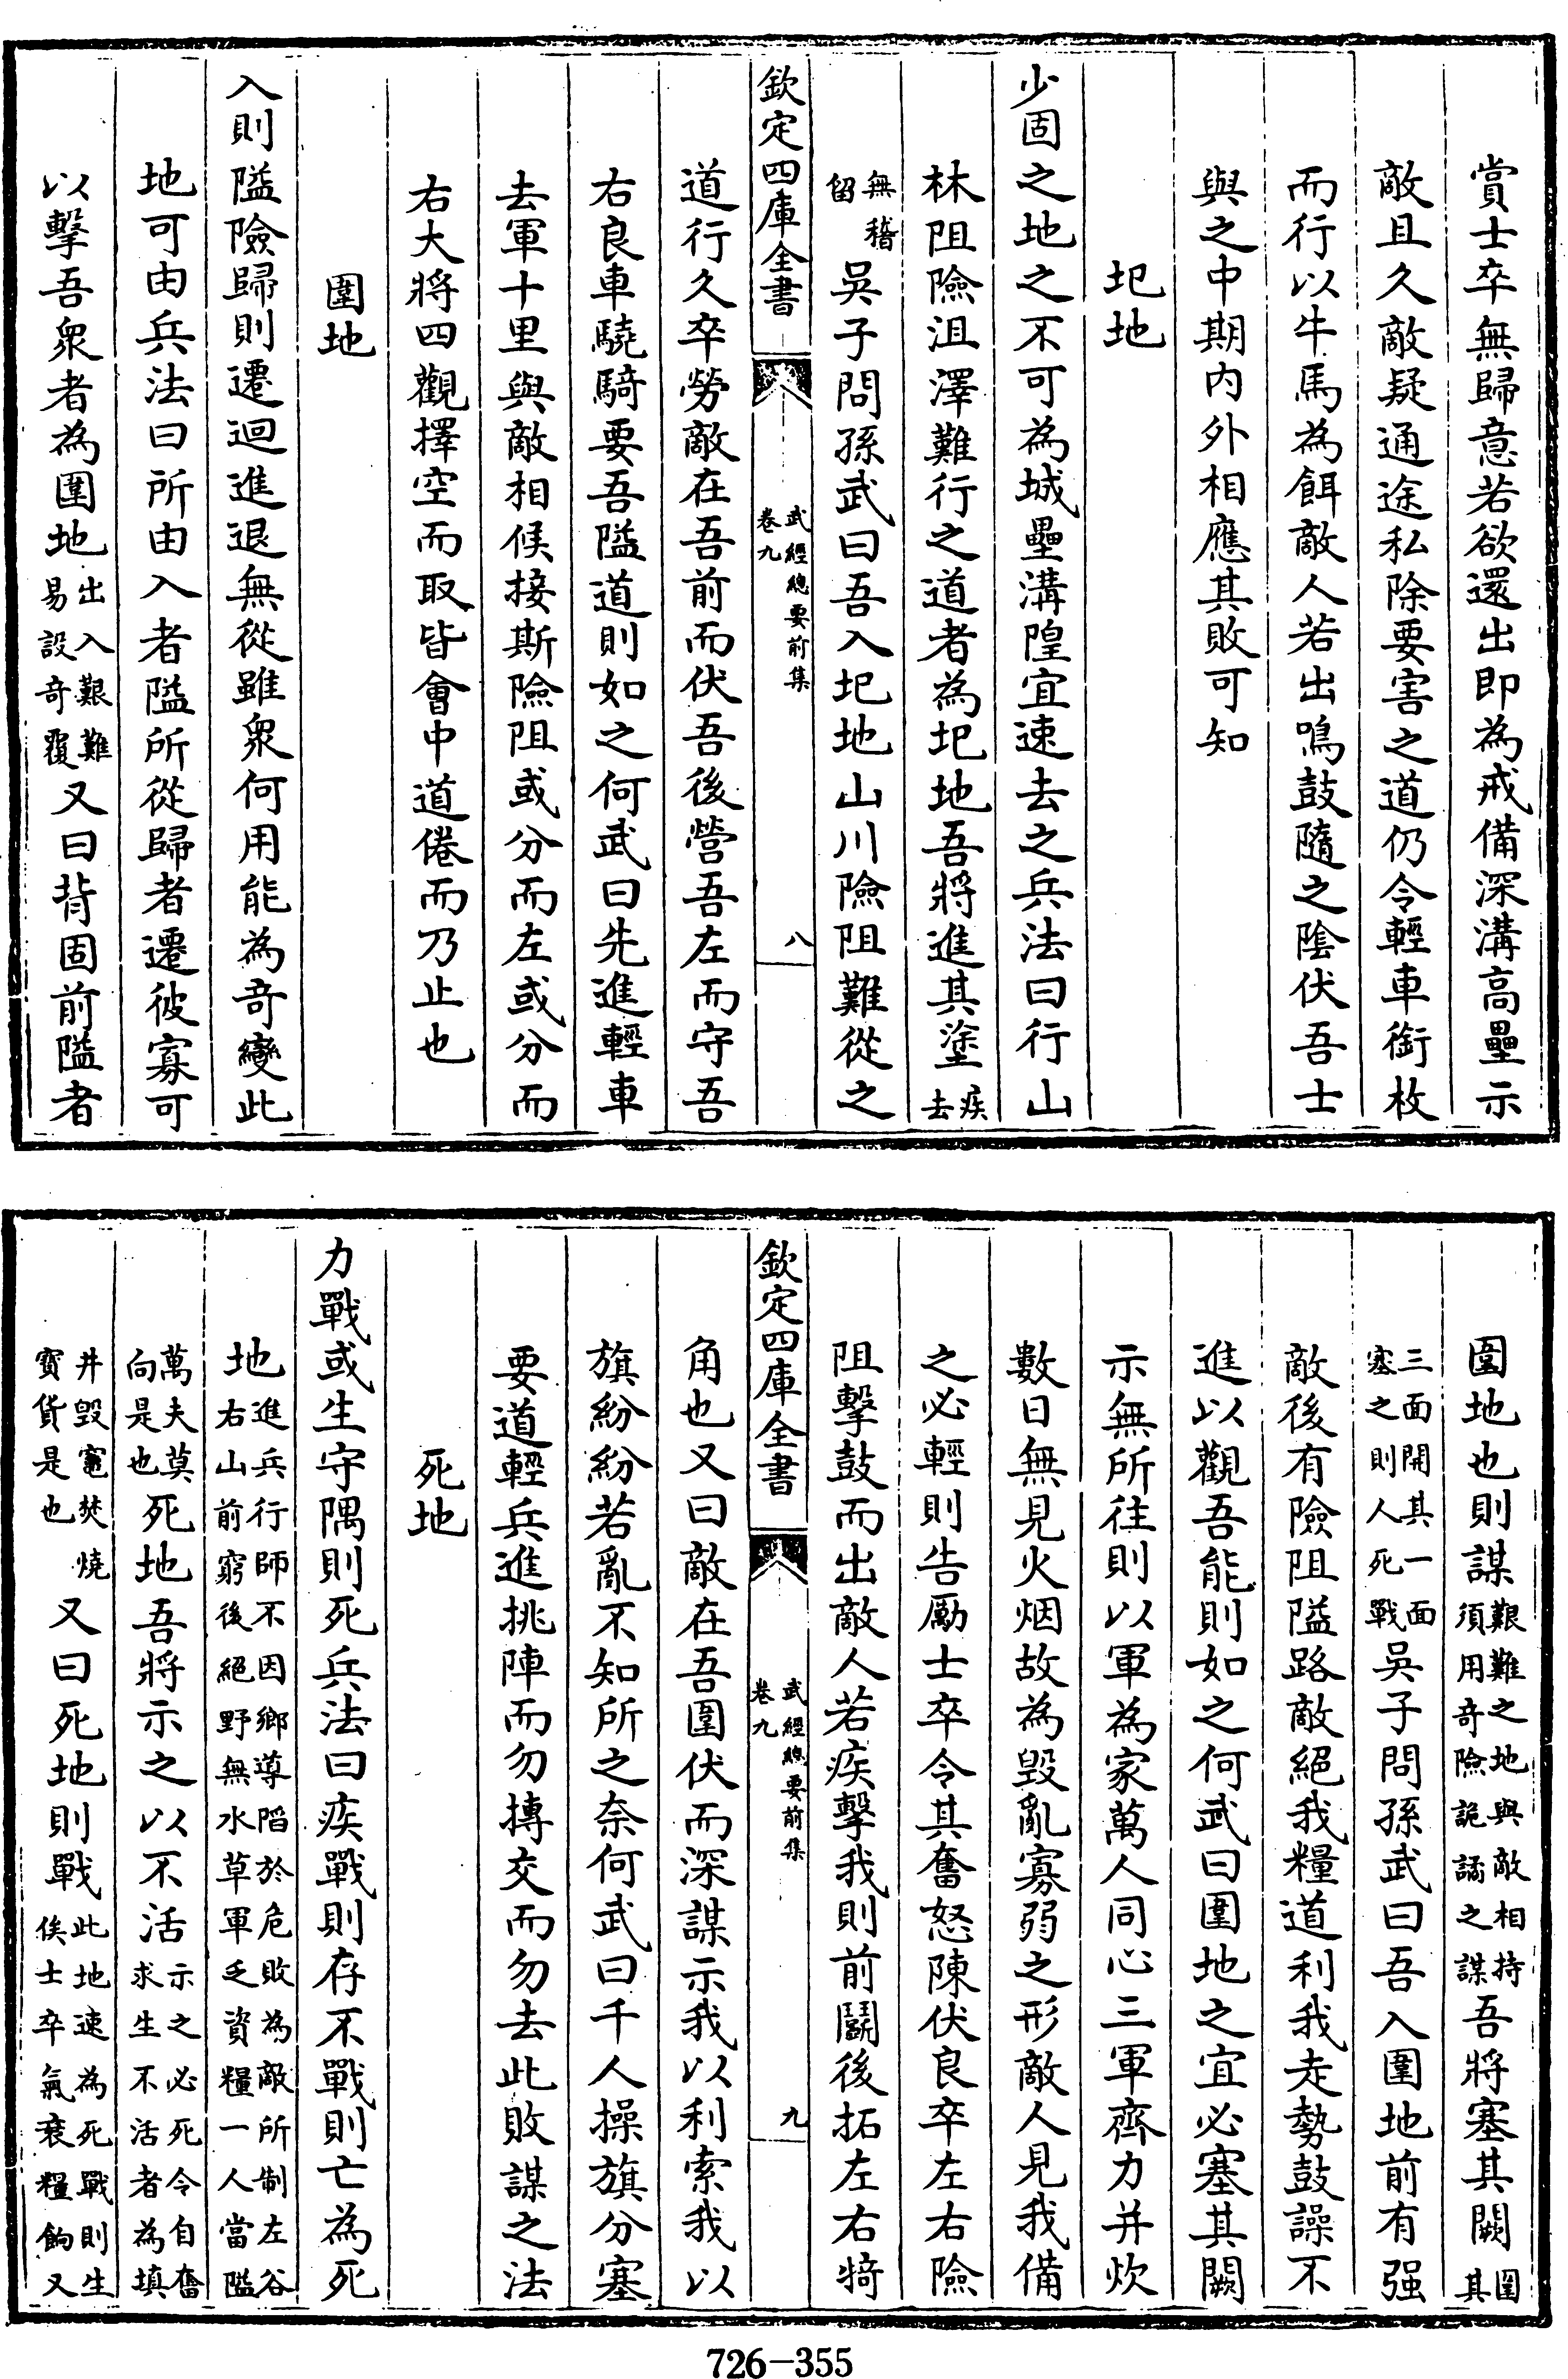 賞士卒無歸意若欲還出即為戒備深溝高壘示
敵且久敵疑通途私除要害之道仍令輕車銜枚
而行以牛馬為餌敵人若出鳴鼓隨之陰伏吾士
與之中期内外相應其敗可知
圯地
少固之地之不可為城壘溝隍宜速去之兵法曰行山
林阻險沮澤難行之道者為圯地吾將進其塗疾去
無稽留吳子問孫武曰吾入圯地山川險阻難從之
欽定四庫全書 武經總要前集 卷九 八
道行久卒勞敵在吾前而伏吾後營吾左而守吾
右良車驍騎要吾隘道則如之何武曰先進輕車
去軍十里與敵相候接斯險阻或分而左或分而
右大將四觀擇空而取皆會中道倦而乃止也
圍地
入則隘險歸則遷迴進退無從雖衆何用能為奇變此
地可由兵法曰所由入者隘所從歸者遷彼寡可
以擊吾衆者為圍地出入艱難易設奇覆又曰背固前隘者
圍地也則謀艱難之地與敵相持須用奇險詭譎之謀吾將塞其闕圍其
三面開其一面塞之則人死戰吳子問孫武曰吾入圍地前有强
敵後有險阻隘路敵絕我糧道利我走勢鼓譟不
進以觀吾能則如之何武曰圍地之宜必塞其闕
示無所往則以軍為家萬人同心三軍齊力并炊
數日無見火烟故為毁亂寡弱之形敵人見我備
之必輕則告勵士卒令其奮怒陳伏良卒左右險
阻擊鼓而出敵人若疾擊我則前鬭後拓左右犄
欽定四庫全書 武經總要前集 卷九 九
角也又曰敵在吾圍伏而深謀示我以利索我以
旗紛紛若亂不知所之奈何武曰千人操旗分塞
要道輕兵進挑陣而勿摶交而勿去此敗謀之法
死地
力戰或生守隅則死兵法曰疾戰則存不戰則亡為死
地進兵行師不因鄉導陷於危敗為敵所制左谷右山前窮後絕野無水草軍乏資糧一人當隘
萬夫莫向是也死地吾將示之以不活示之必死令自奮求生不活者為填
井毁竈焚燒寳貨是也又曰死地則戰此地速為死戰則生俟士卒氣衰糧餉又
726-355